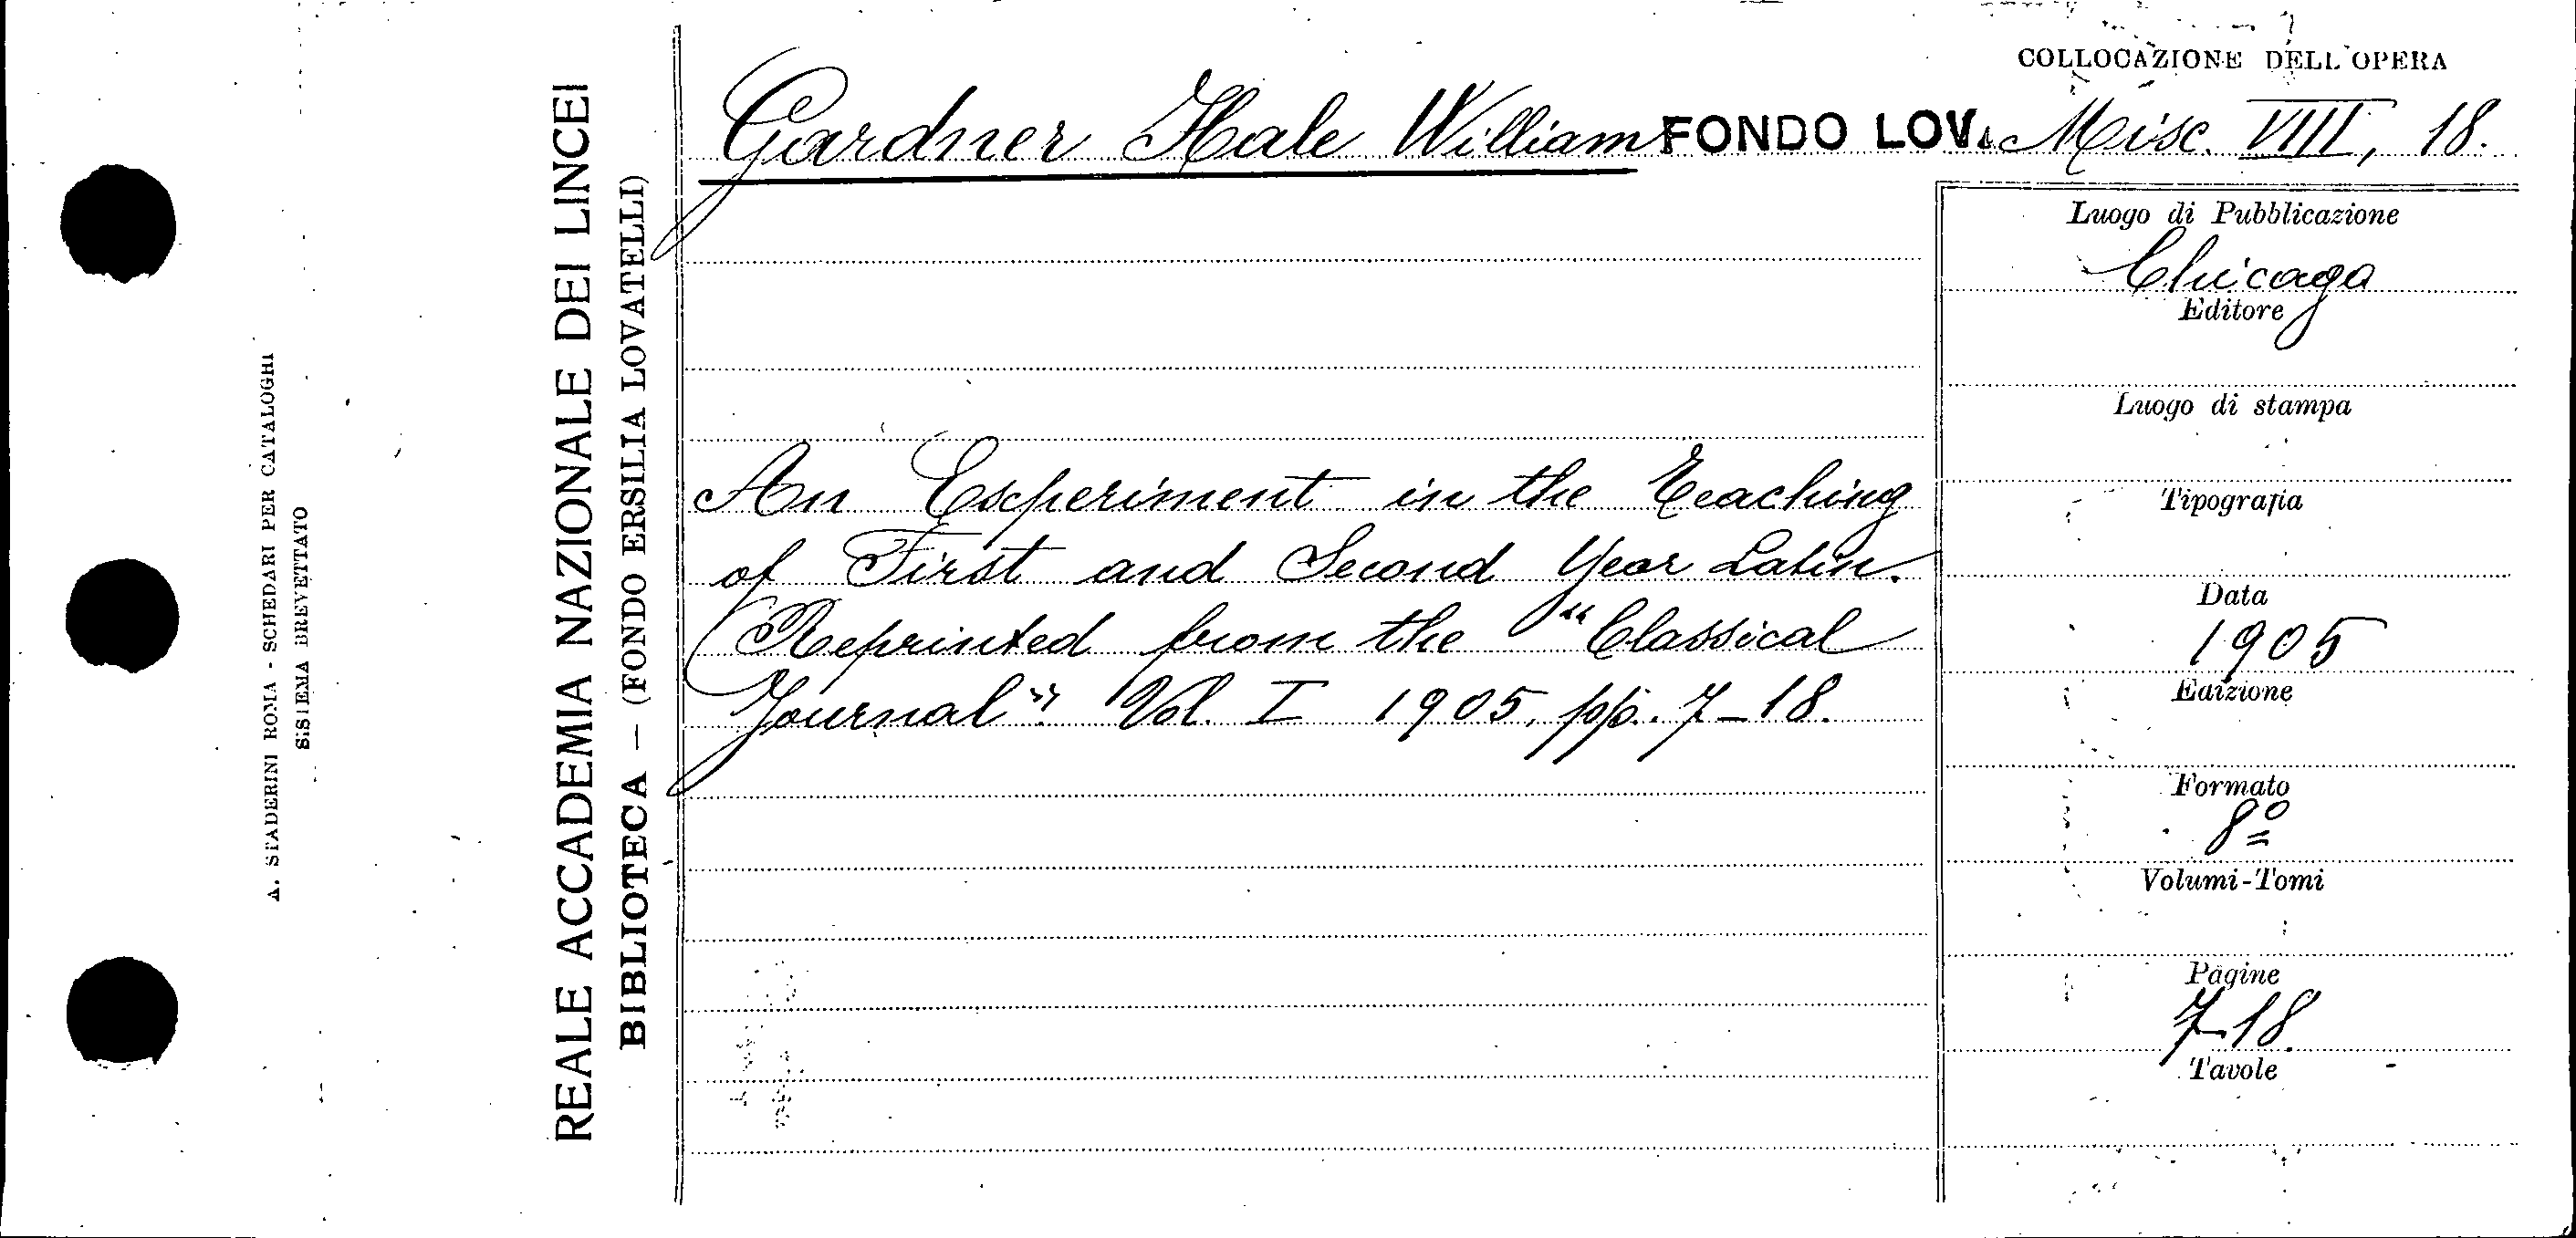 A. STADERINI ROMA - SCHEDARI PER CATALOGHI
SISTEMA BREVETTATO
REALE ACCADEMIA NAZIONALE DEI LINCEI
BIBLIOTECA — (FONDO ERSILIA LOVATELLI)
COLLOCAZIONE DELL'OPERA
Gardner Hale William FONDO LOV. Misc. VIII, 18.
An Experiment in the Teaching
of First and Second Year Latin.
(Reprinted from the "Classical
Journal" Vol. I 1905, pp. 7-18.
Luogo di Pubblicazione
Chicago
Editore
Luogo di stampa
Tipografia
Data
1905
Edizione
Formato
8º
Volumi-Tomi
Pagine
7-18.
Tavole